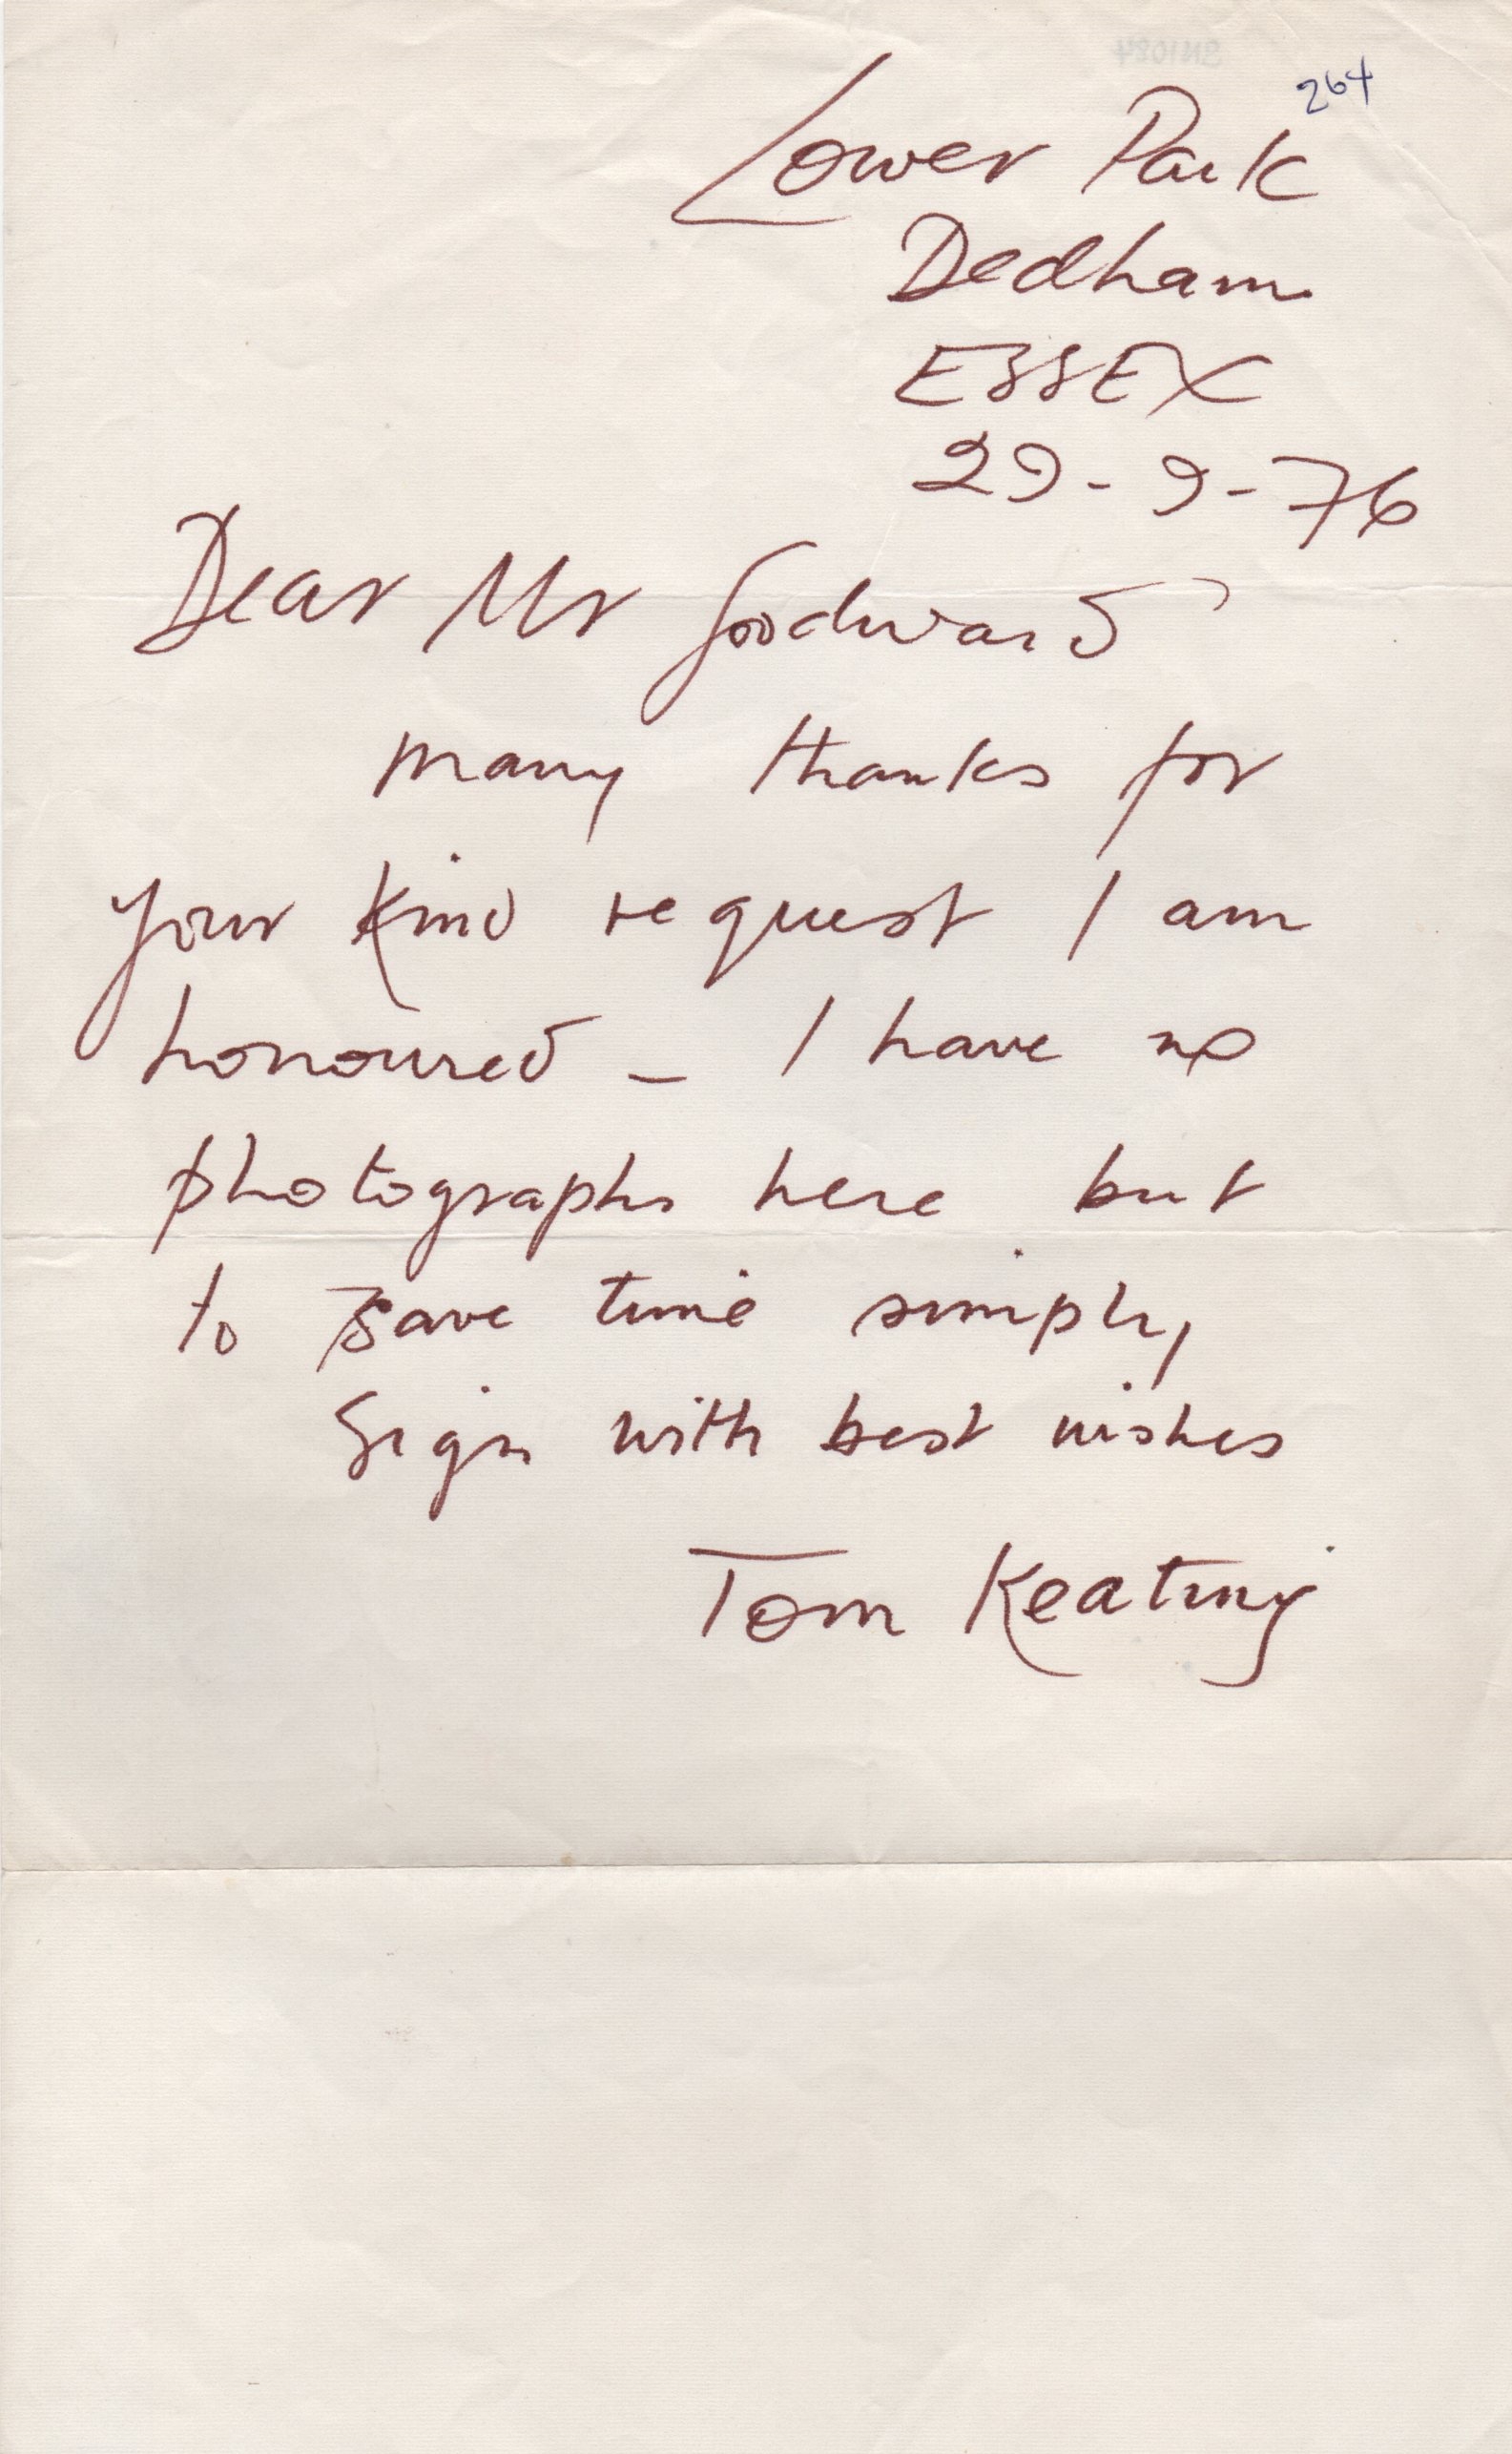 264
Lower Park
Dedham
ESSEX
29-9-76
Dear Mr Goodward
many thanks for
your kind request I am
honoured - I have no
photographs here but
to save time simply
Sign with best wishes
Tom Keating